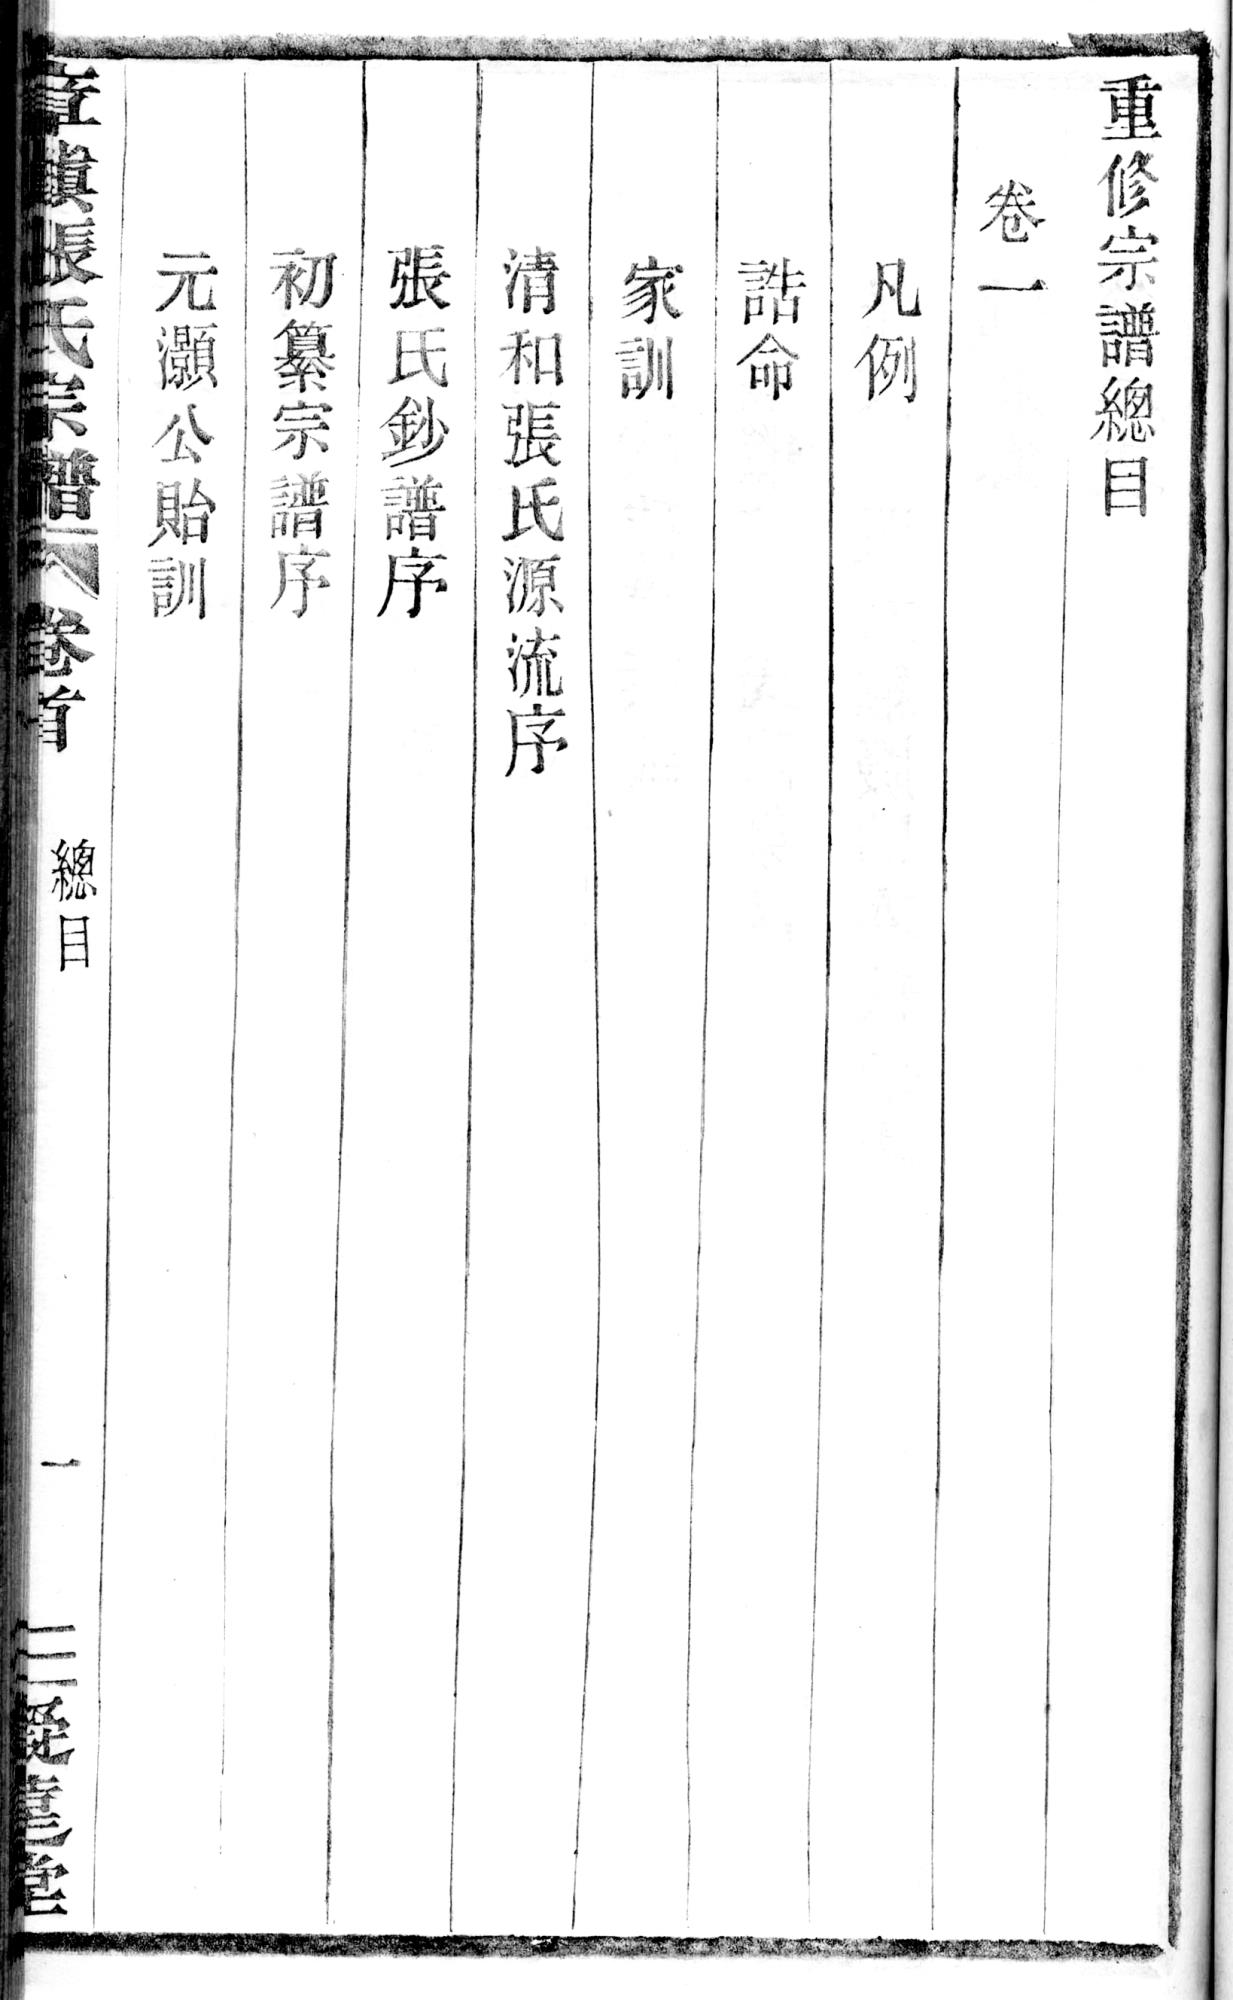 重修宗譜總目
卷一
凡例
誥命
家訓
清和張氏源流序
張氏鈔譜序
初纂宗譜序
元灝公貽訓
張氏宗譜
卷首
總目
一
堂